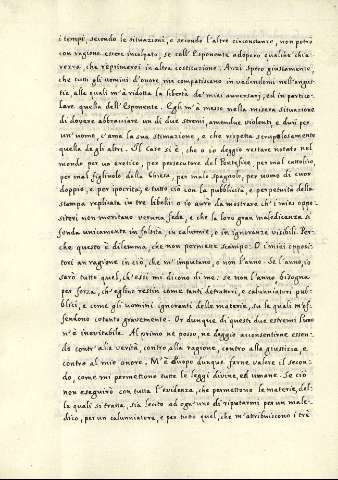 i tempi, secondo le situazioni, e secondo l'altre circostanze, non potrò
con ragione essere incolpato, se coll'Esponente adopero qualche chia-
rezza, che reprimerei in altra costituzione. Anzi spero giustamente,
che tutti gli uomini d'onore mi compatiscano in vedendomi nell'angu-
stie, alle quali m'à ridotto la libertà de' miei avversarj, ed in partico-
lare quella dell'Esponente. Egli m'à messo nella misera situazione
di dovere abbracciare un di due stremi, amendue violenti e duri per
un'uomo, c'ama la sua stimazione, e che rispetta scrupolosamente
quella degli altri. Il caso si è, che o io deggio restare notato nel
mondo per un eretico, per persecutore del Pontefice, per mal cattolico,
per mal figliuolo della Chiesa, per malo spagnuolo, per uomo di cuor
doppio, e per ipocrita, e tutto ciò con la pubblicità, e perpetuità della
stampa replicata in tre libelli: o io avrò da mostrare ch'i miei oppo-
sitori non meritano veruna fede, e che la loro gran maledicenza si
fonda unicamente in falsità, in calunnie, o in ignoranze visibili. Per-
chè questo è dilemma, che non permette scampo: O i miei opposi-
tori an ragione in ciò, che m'imputano, o non l'anno. Se l'anno, io
sarò tutto quel, ch'essi mi dicono di me: se non l'anno bisogna
per forza, ch'eglino restin come tanti detrattori, e calunniatori pub-
blici, e come gli uomini ignoranti delle materie, su le quali m'of-
fendono cotanto gravemente. Or dunque di questi due estremi l'uno
n'è inevitabile. Al primo nè posso, nè deggio acconsentire essen-
do contr'alla verità, contro alla ragione, contro alla giustizia, e
contro al mio onore. M'è d'uopo dunque farne valere il secon-
do, come mi permettono tutte le leggi divine, ed umane. Se ciò
non eseguirò con tutta l'evidenza, che permettono le materie, del-
la quali si tratta, sia lecito ad ogn'uno di riputarmi per un male-
dico, per un calunniatore, e per tutto quel, che m'attribuiscono i tre